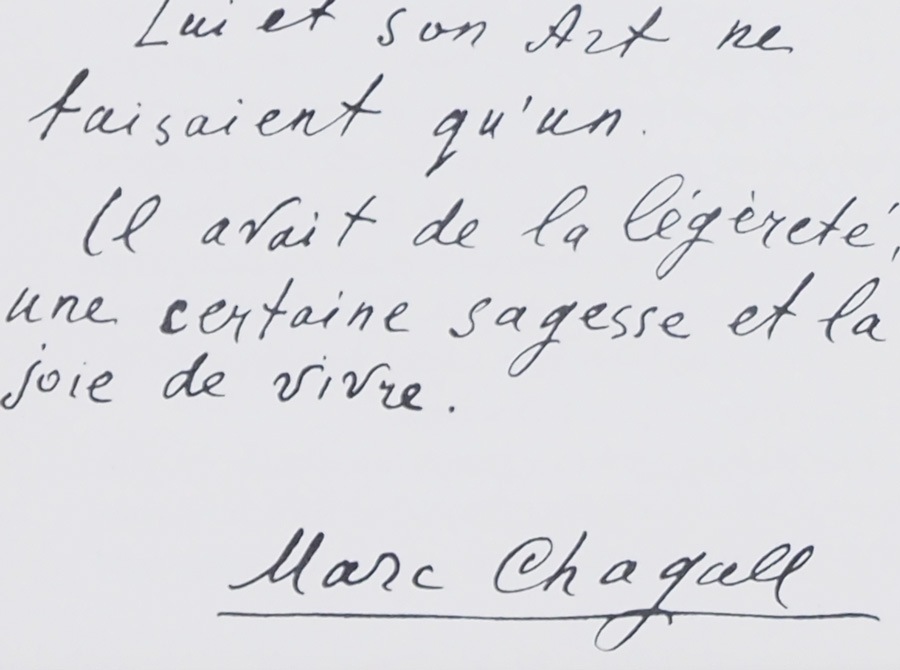 Lui et son Art ne
faisaient qu'un.
Il avait de la légèreté,
une certaine sagesse et la
joie de vivre.
Marc Chagall